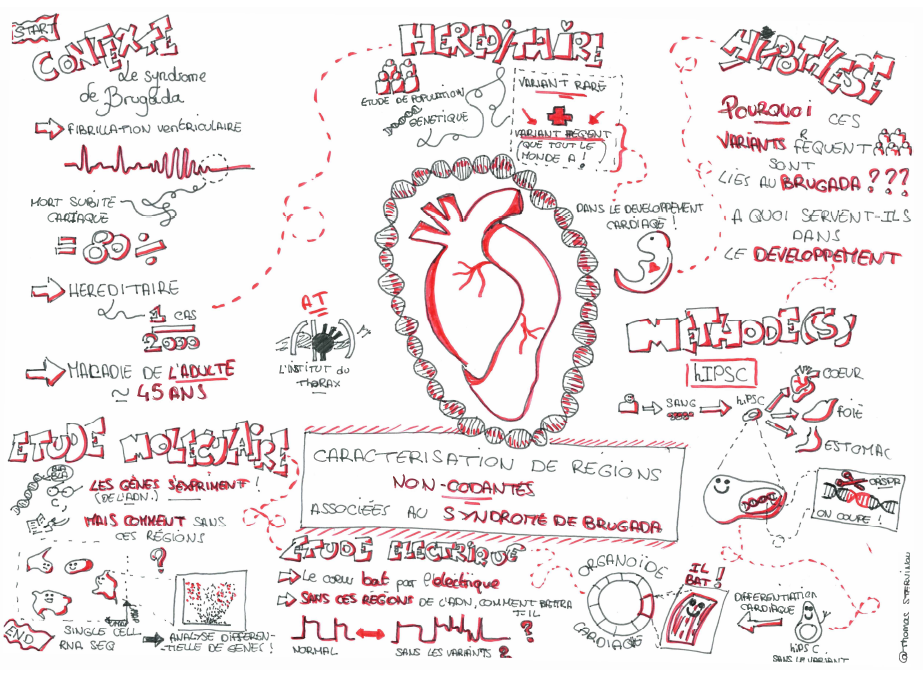 START
CONTEXTE
Le syndrome
de Brugada
FIBRILLATION VENTRICULAIRE
MORT SUBITE
CARDIAQUE
= 80 %
HEREDITAIRE
1 CAS
2000
MALADIE DE L'ADULTE
~ 45 ANS
HEREDITAIRE
ETUDE DE POPULATION
GENETIQUE
VARIANT RARE
VARIANT FREQUENT
(QUE TOUT LE
MONDE A !)
DANS LE DEVELOPPEMENT
CARDIAQUE !
HYPOTHESE
POURQUOI CES
VARIANTS FREQUENT
SONT
LIES AU BRUGADA ???
A QUOI SERVENT-ILS
DANS
LE DEVELOPPEMENT
AT
L'INSTITUT DU
THORAX
METHODE(S)
hIPSC
SANG
hiPSC
COEUR
FOIE
ESTOMAC
CRISPR
ON COUPE !
CARACTERISATION DE REGIONS
NON-CODANTES
ASSOCIÉES AU SYNDROME DE BRUGADA
ETUDE MOLECULAIRE
LES GÈNES S'EXPRIMENT !
(DE L'ADN.)
MAIS COMMENT SANS
CES RÉGIONS
?
END
SINGLE CELL
RNA SEQ
ANALYSE DIFFEREN-
TIELLE DE GENES !
ETUDE ELECTRIQUE
Le coeur bat par l'electrique
SANS CES REGIONS DE L'ADN, COMMENT BATTRA
T-IL
?
NORMAL
SANS LES VARIANTS ?
ORGANOÏDE
CARDIAQUE
IL
BAT !
DIFFERENTIATION
CARDIAQUE
hiPSC
SANS LE VARIANT